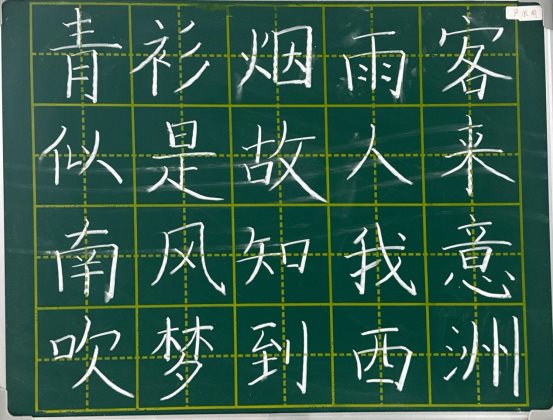 青衫烟雨客
似是故人来
南风知我意
吹梦到西洲